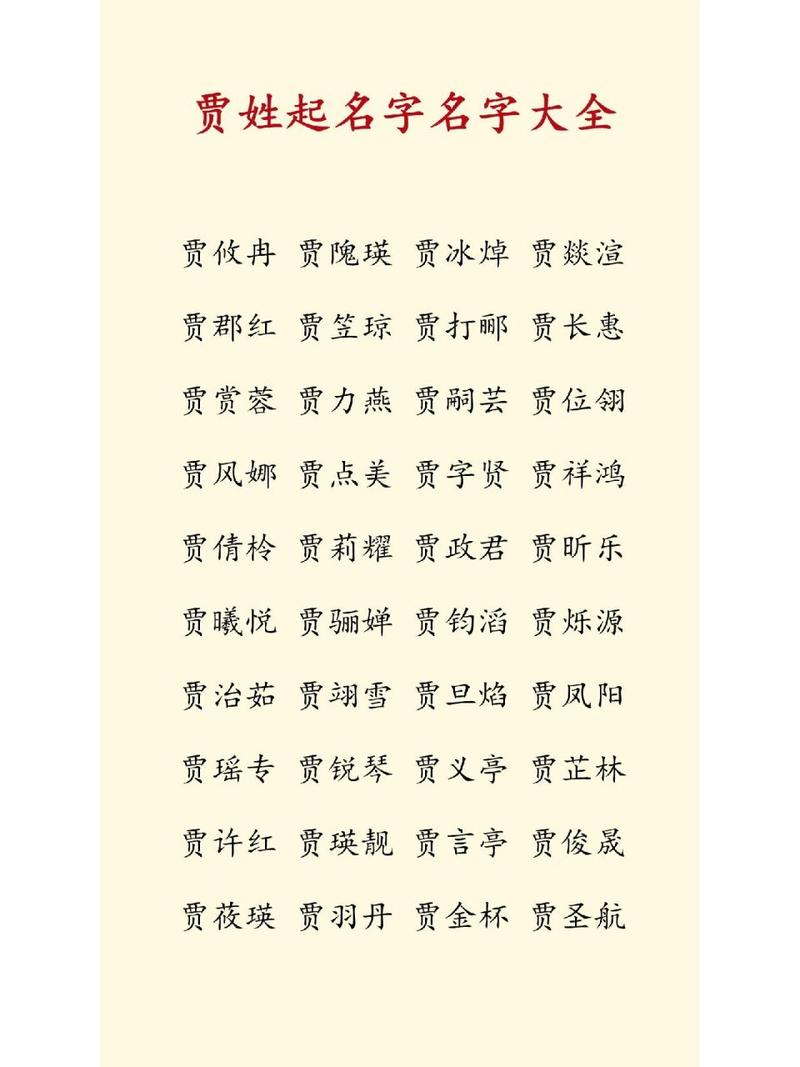 贾姓起名字名字大全
贾攸冉 贾隗瑛 贾冰焯 贾燚渲
贾郡红 贾笠琼 贾打郦 贾长惠
贾赏蓉 贾力燕 贾嗣芸 贾位翎
贾风娜 贾点美 贾字贤 贾祥鸿
贾倩柃 贾莉耀 贾政君 贾昕乐
贾曦悦 贾骊婵 贾钧滔 贾烁源
贾治茹 贾翊雪 贾旦焰 贾凤阳
贾瑶专 贾锐琴 贾义亭 贾芷林
贾许红 贾瑛靓 贾言亭 贾俊晟
贾莜瑛 贾羽丹 贾金杯 贾圣航